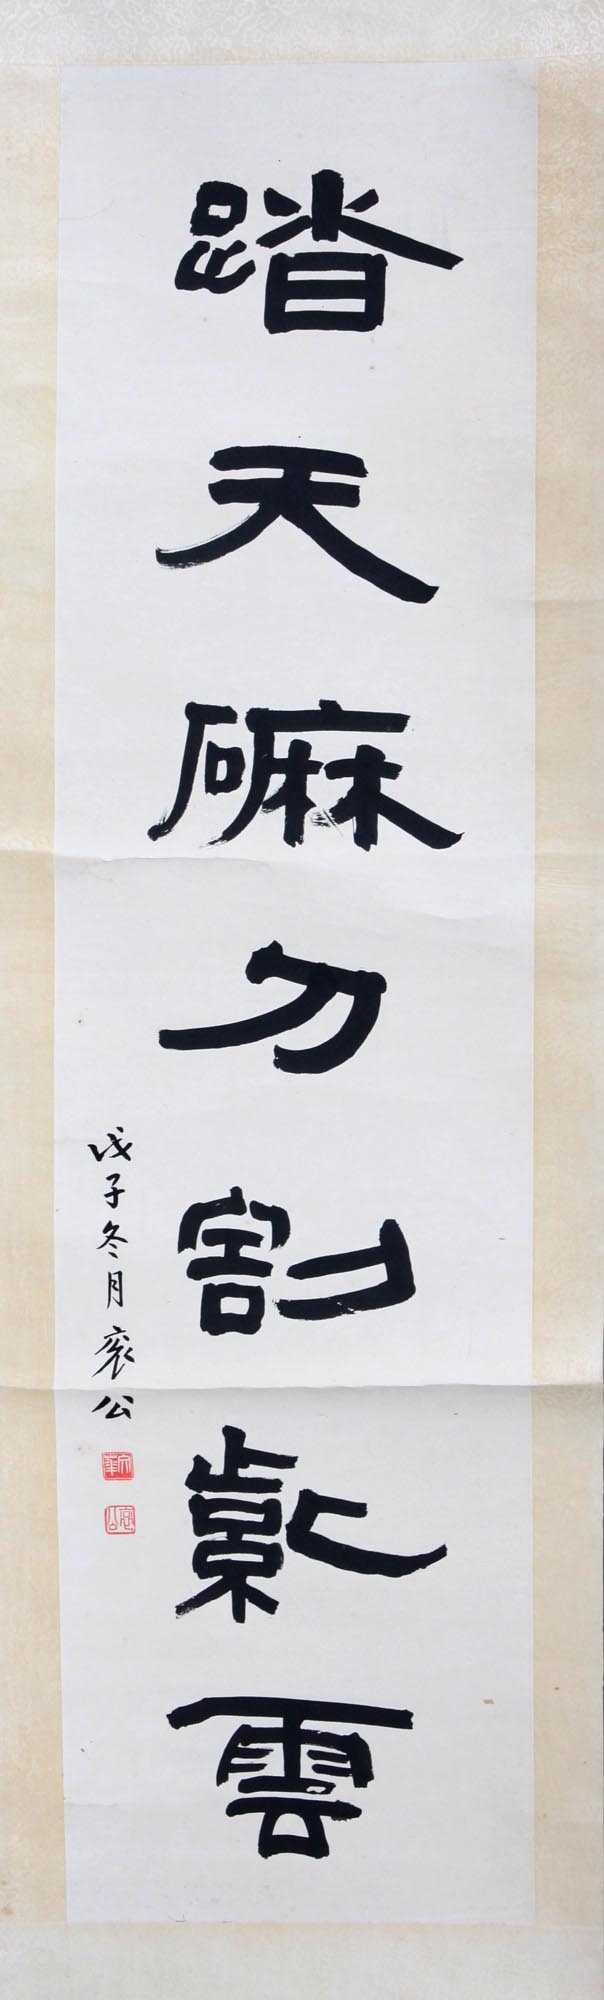 踏天磨刀割紫雲
戊子冬月袌公